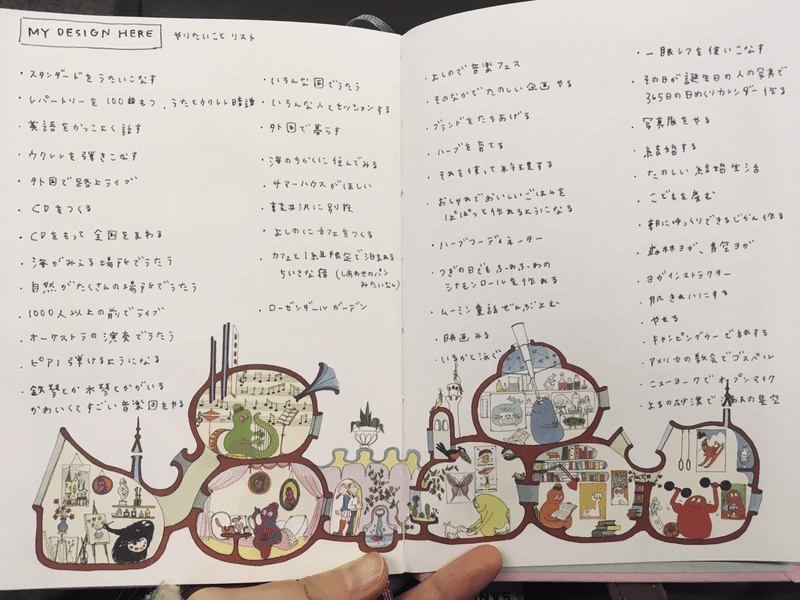 MY DESIGN HERE やりたいこと リスト
・スタンダードをうたいこなす
・レパートリーを100曲もつ ・うたとウクレレ
・英語をかっこよく話す
・ウクレレを弾きこなす
・外国で路上ライブ
・CDをつくる
・CDをもって全国をまわる
・海がみえる場所でうたう
・自然がたくさんの場所でうたう
・1000人以上の前でライブ
・オーケストラの演奏でうたう
・ピアノ弾けるようになる
・鉄琴とか木琴とかがいる
かわいくてすごい音楽団をやる
・いろんな国でうたう
・いろんな人とセッションする
・外国で暮らす
・海のちかくに住んでみる
・サマーハウスがほしい
・軽井沢に別荘
・よしのにカフェをつくる
・カフェと1組限定で泊まれる
ちいさな宿(しあわせのパン
みたいな)
・ローゼンダール ガーデン
・よしので音楽フェス
・そのなかでたのしい企画やる
・ブランドをたちあげる
・ハーブを育てる
・それを使って料理する
・おしゃれでおいしいごはんを
ぱぱっと作れるようになる
・ハーブコーディネーター
・つぎの日でもふわふわの
シナモンロールを作れる
・ムーミン童話ぜんぶよむ
・映画みる
・いるかと泳ぐ
・一眼レフを使いこなす
・その日が誕生日の人の写真で
365日の日めくりカレンダー作る
・写真展をやる
・結婚する
・たのしい結婚生活
・こどもを産む
・朝にゆっくりできるじかん作る
・森林ヨガ、青空ヨガ
・ヨガインストラクター
・肌きれいにする
・やせる
・キャンピングカーで旅する
・アメリカの教会でゴスペル
・ニューヨークでオープンマイク
・よるの砂漠で満天の星空